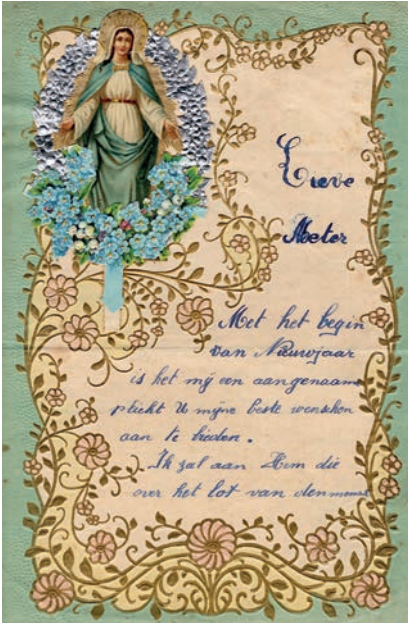 Lieve
Meter
Met het begin
van Nieuwjaar
is het mij een aangename
plicht U mijne beste wenschen
aan te bieden.
Ik zal aan Hem die
over het lot van den mensch